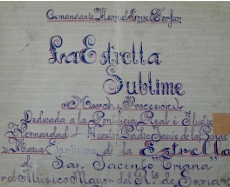 Comandante Manuel López Farfán
La Estrella
Sublime
Marcha Procesional
Dedicada a la Pontificia Real e Ilustre
Hermandad Nuestro Padre Jesús de las Penas
y María Santísima de la Estrella
de San Jacinto Triana
el Músico Mayor del